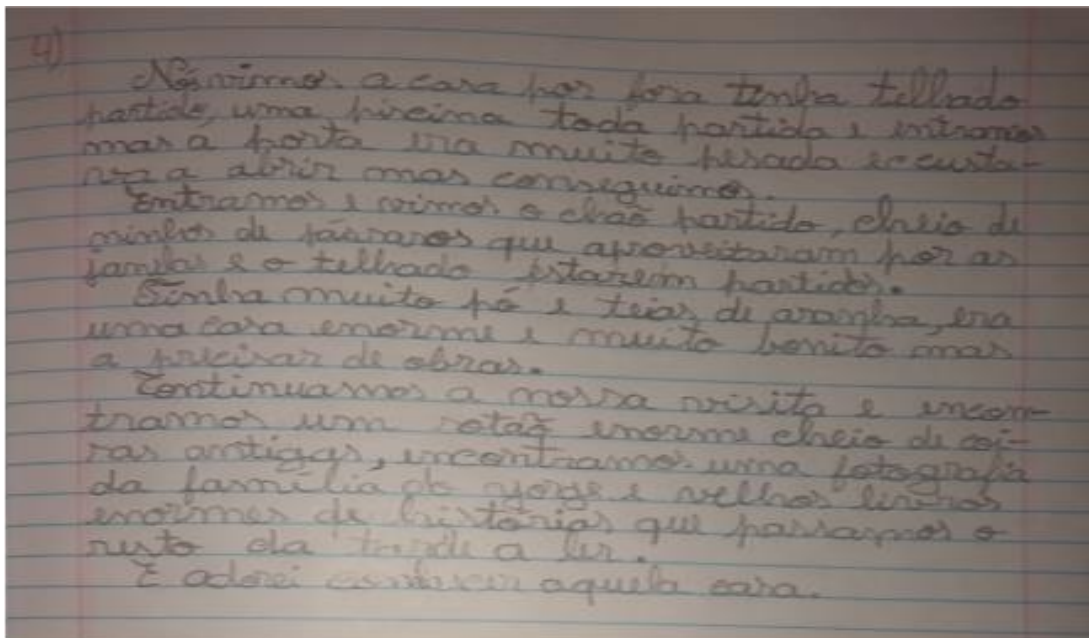 4)
Nós vimos a casa por fora tinha telhado
partido, uma piscina toda partida e entramos
mas a porta era muito pesada e custa-
va a abrir mas conseguimos.
Entramos e vimos o chão partido, cheio de
ninhos de pássaros que aproveitaram por as
janelas e o telhado estarem partidos.
Tinha muito pó e teias de aranha, era
uma casa enorme e muito bonita mas
a precisar de obras.
Continuamos a nossa visita e encon-
tramos um sotão enorme cheio de coi-
sas antigas, encontramos uma fotografia
da família do Jorge e velhos livros
enormes de histórias que passamos o
resto da tarde a ler.
E adorei conhecer aquela casa.